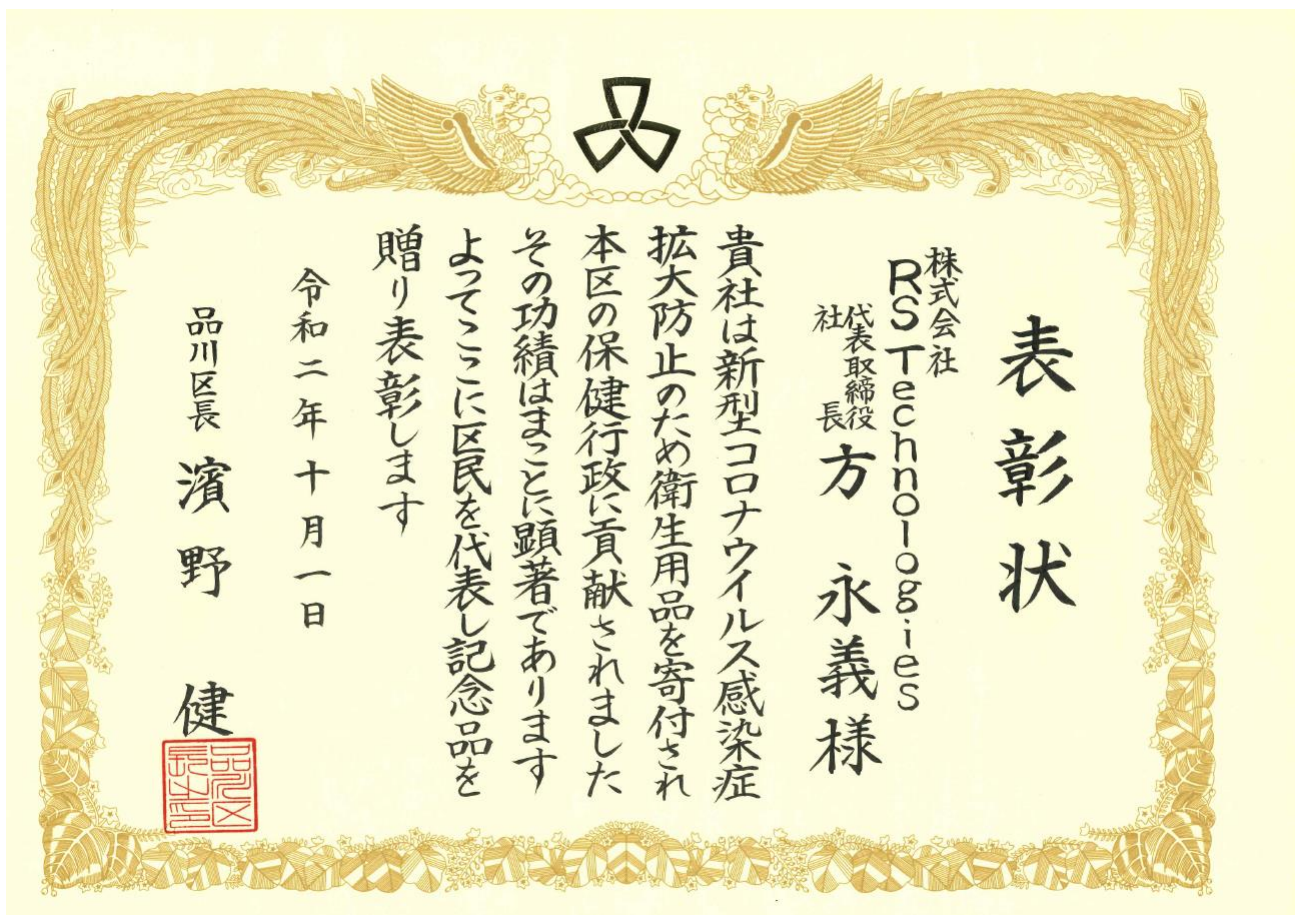 表彰状
株式会社
RS Technologies
代表取締役
社長
方 永義様
貴社は新型コロナウイルス感染症
拡大防止のため衛生用品を寄付され
本区の保健行政に貢献されました
その功績はまことに顕著であります
よってここに区民を代表し記念品を
贈り表彰します
令和二年十月一日
品川区長 濱野 健
品川区
長之印